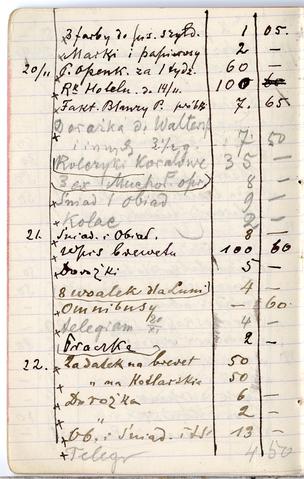 3 farby do szyld. 1 05.
Marki i papierosy 2 –
20/11 P. openk. za 1 tydz. 60 –
Rk Hotelu do 14/11 100
Fakt. Bławy P. 7. 65
Dorożka d. Walter
i innych 7. 50
Kolczyki Koralowe 35 –
3 ex Muchol. opr 8 –
Śniad i obiad 9 –
Kolac 2 –
21. Śniad. i Obiad. 8 –
Wpis brewetu 100 60
Dorożki 5 –
8 woalek dla Luni 4 –
Omnibusy – 60.
telegram 4 –
Praczka 2 –
22. Zadatek na brewet 50
" na Kotlarskie 50
Dorożka 6 –
" 2 –
Ob. i Śniad. 13 –
Telegr 4 50